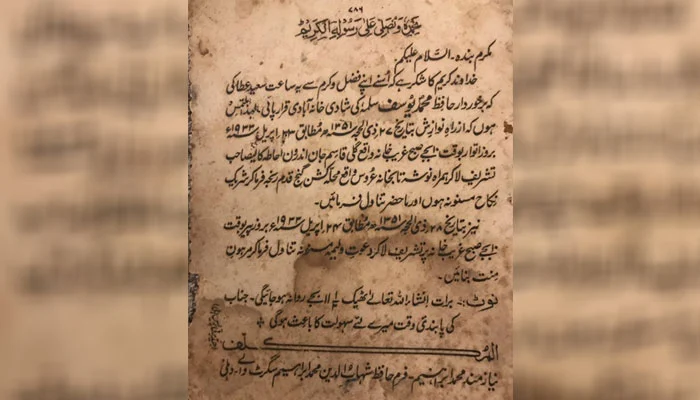 ۷۸۶
نحمدہ ونصلی علی رسولہ الکریم
مکرم بندہ۔ السّلام علیکم۔
خداوند کریم کا شکر ہے کہ اُسنے اپنے فضل و کرم سے یہ ساعت سعید عطا کی
کہ برخوردار حافظ محمد یوسف سلمہٗ کی شادی خانہ آبادی قرار پائی۔ لہٰذا ملتمس
ہوں کہ ازراہِ نوازش بتاریخ ۲۷؍ذی الحجہ ۱۳۵۱ھ مُطابق ۲۳؍اپریل ۱۹۳۳ء
بروز اتوار بوقت ۷ بجے صبح غریب خانہ واقع گلی قاسم جان اندرون احاطہ کالے صاحب
تشریف لا کر ہمراہ نوشہ تا بخانہ عروس واقع محلہ کشن گنج قدم رنجہ فرما کر شریک
نکاح مسنونہ ہوں اور ماحضر تناول فرمائیں۔
نیز بتاریخ ۲۸؍ذی الحجہ ۱۳۵۱ھ مُطابق ۲۴؍اپریل ۱۹۳۳ء بروز پیر بوقت
بجے صبح غریب خانہ پر تشریف لا کر دعوتِ ولیمہ مسنونہ تناول فرما کر مرہونِ
منت بنائیں۔
نوٹ:۔ برات اِنشاءاللہ تعالےٰ ٹھیک بجے روانہ ہو جائیگی۔ جناب
کی پابندی وقت میرے لئے سہولت کا باعث ہوگی
المکلف
نیازمند محمد ابراہیم۔ فرم حافظ شہاب الدین محمد ابراہیم سگرٹ والے۔ دہلی